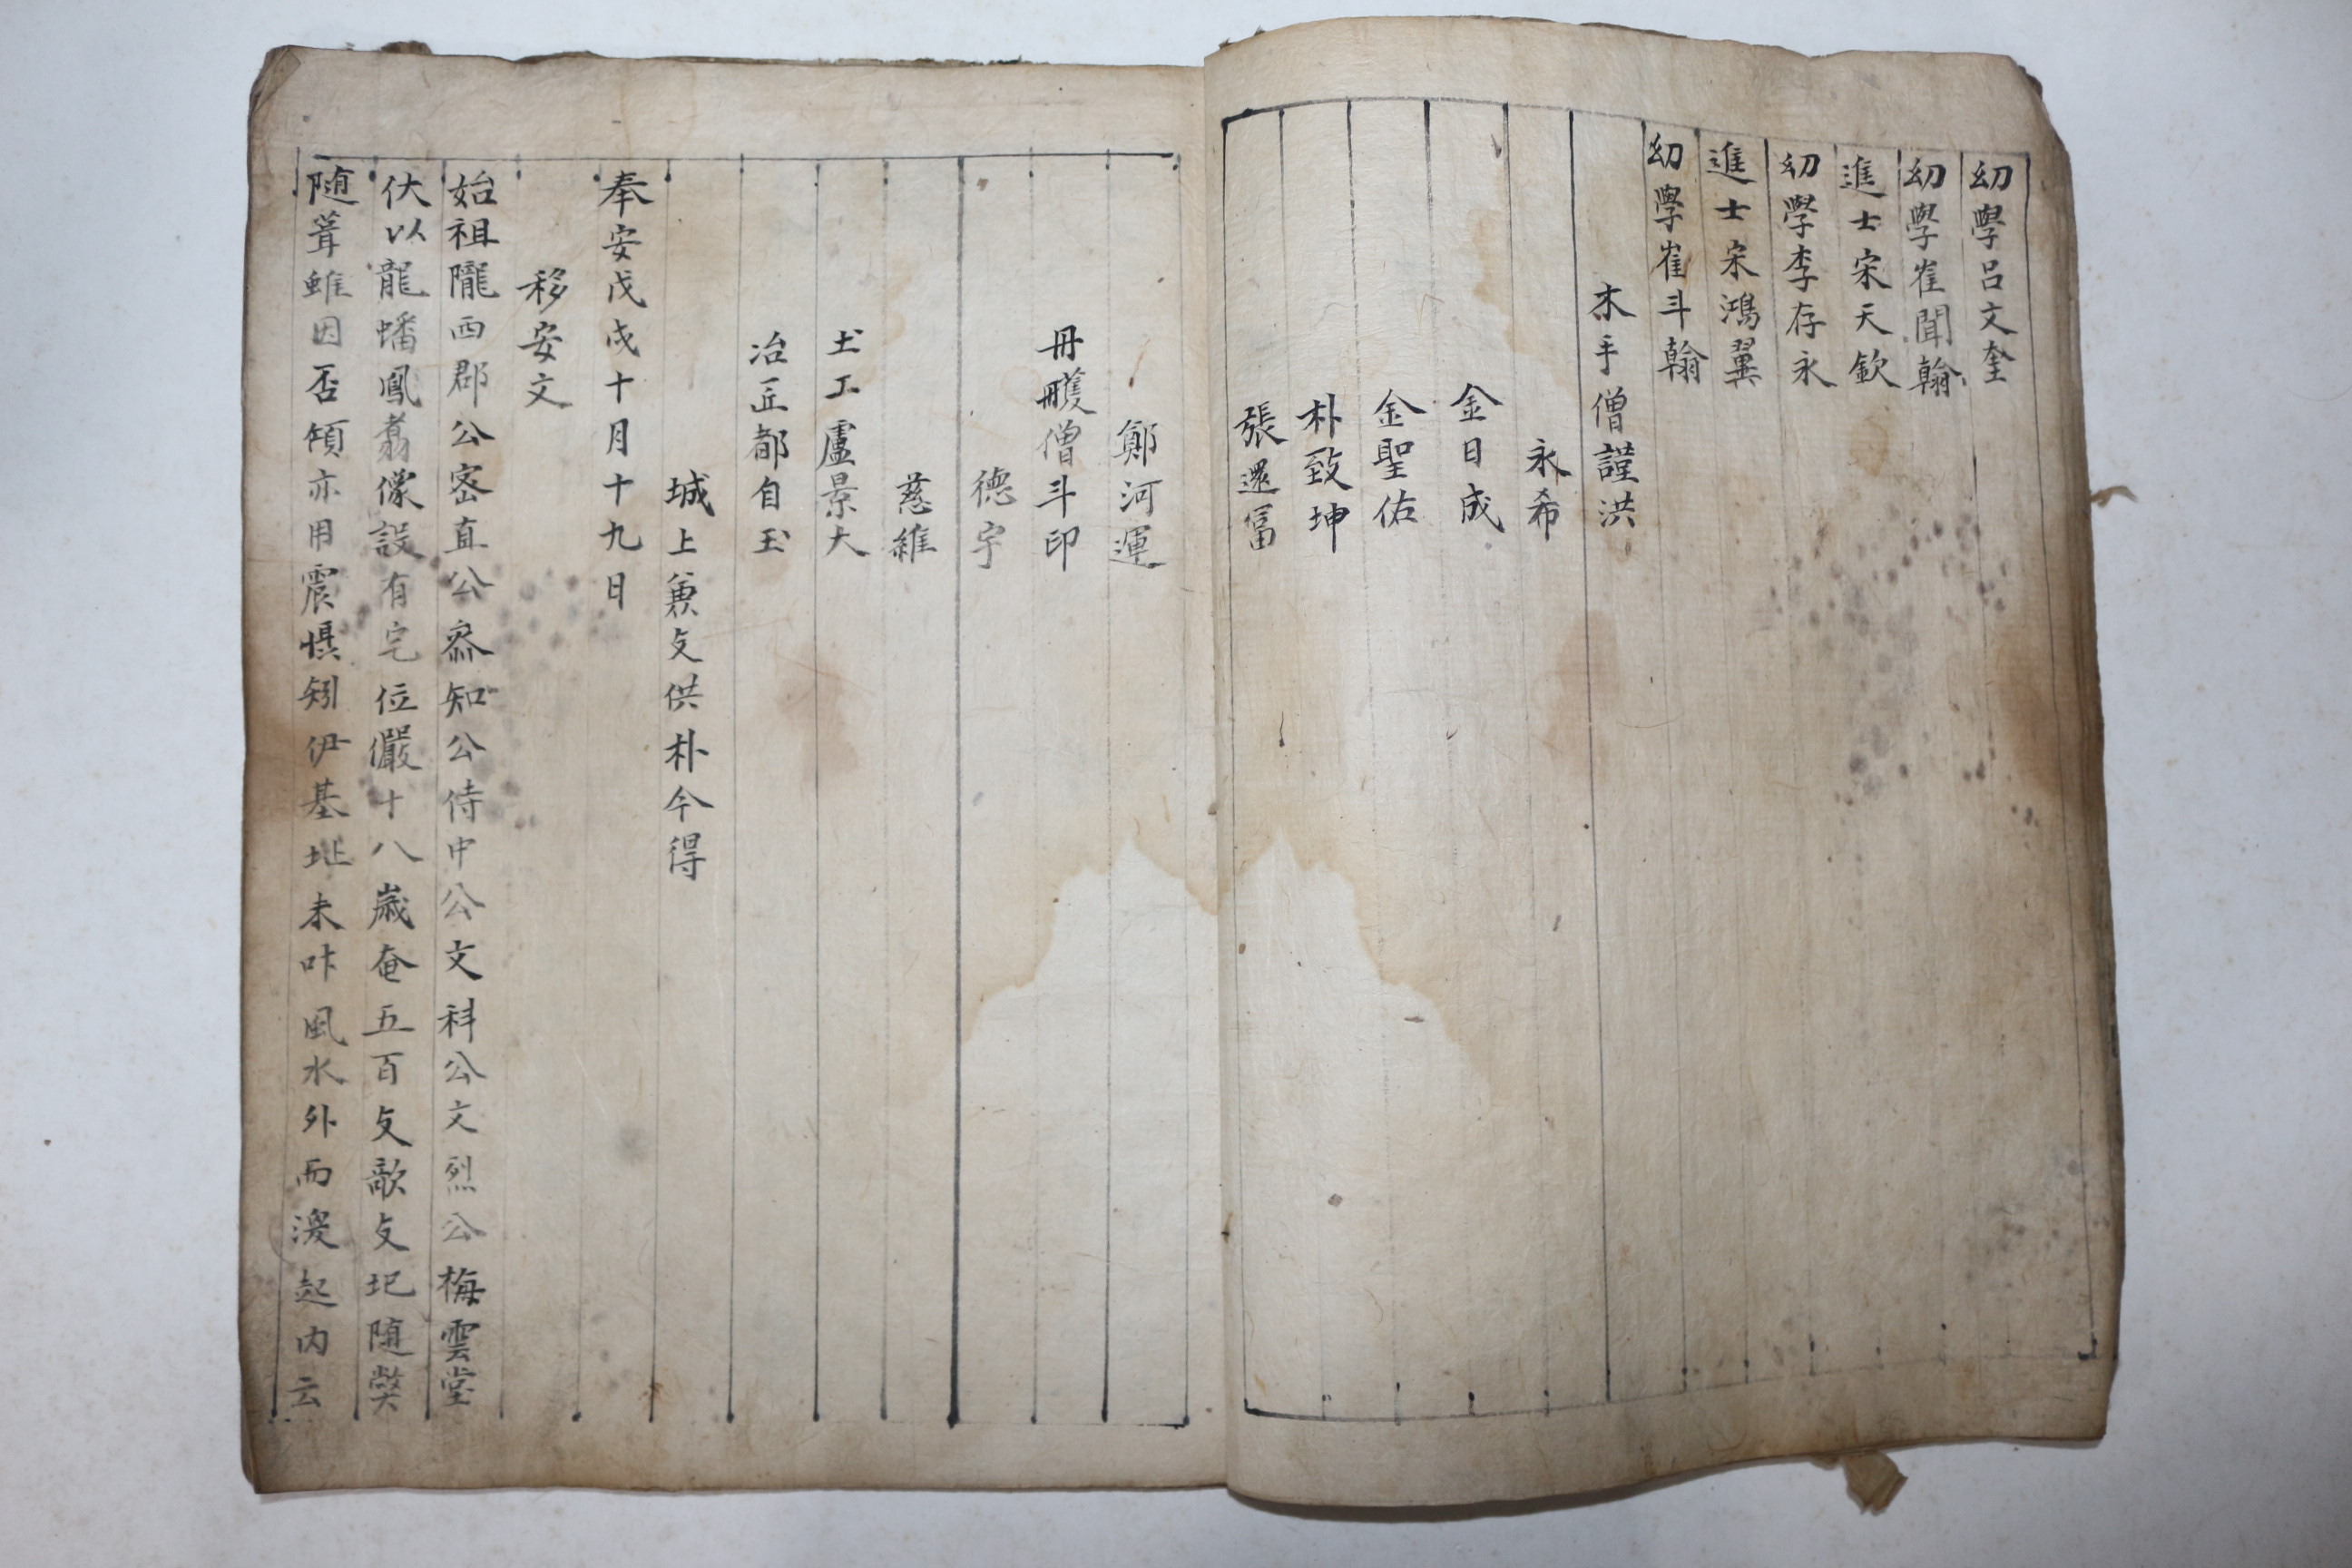 幼學呂文奎
幼學崔聞翰
進士宋天欽
幼學李存永
進士宋鴻翼
幼學崔斗翰
木手僧謹洪
永希
金日成
金聖佑
朴致坤
張還冨
鄭河運
丹雘僧斗印
德宇
慈維
土工盧景大
冶匠都自玉
城上兼攴供朴今得
奉安戊戌十月十九日
移安文
始祖隴西郡公密直公叅知公侍中公文科公文烈公梅雲堂
伏以龍蟠鳳翥像設有宅位儼十八歲奄五百攴歆攴圮随獘
随葺雖因否傾亦用震惧矧伊基址未叶風水外而湠起內云